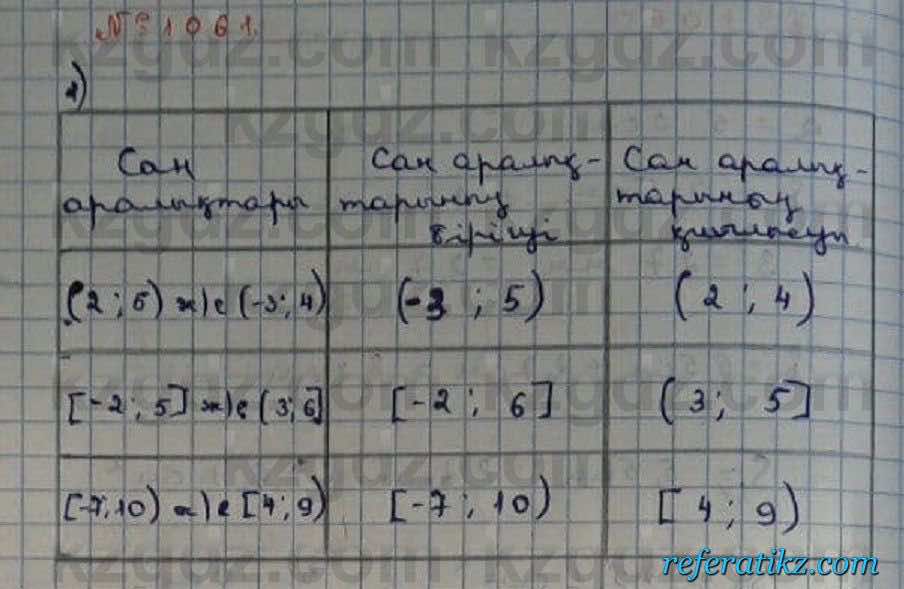 № 1061.
1)
Сан аралықтары
Сан аралық-
тарының
бірігуі
Сан аралық-
тарының
қиылысуы
(2; 5) ж/е (-3; 4)
(-3 ; 5)
(2 ; 4)
[-2; 5] ж/е (3; 6]
[-2 ; 6]
(3; 5]
[-7; 10) ж/е [4; 9)
[-7 ; 10)
[4; 9)
kzgdz.com
referatikz.com